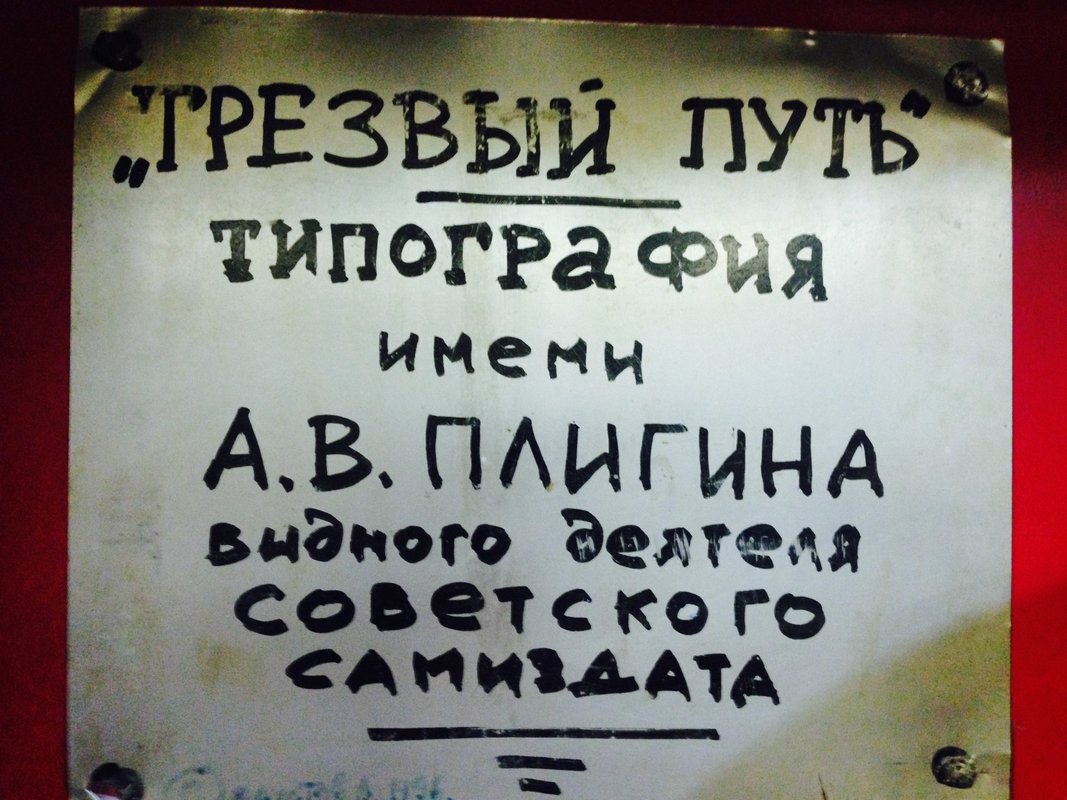 „ТРЕЗВЫЙ ПУТЬ"
типография
имени
А.В. ПЛИГИНА
видного деятеля
советского
самиздата